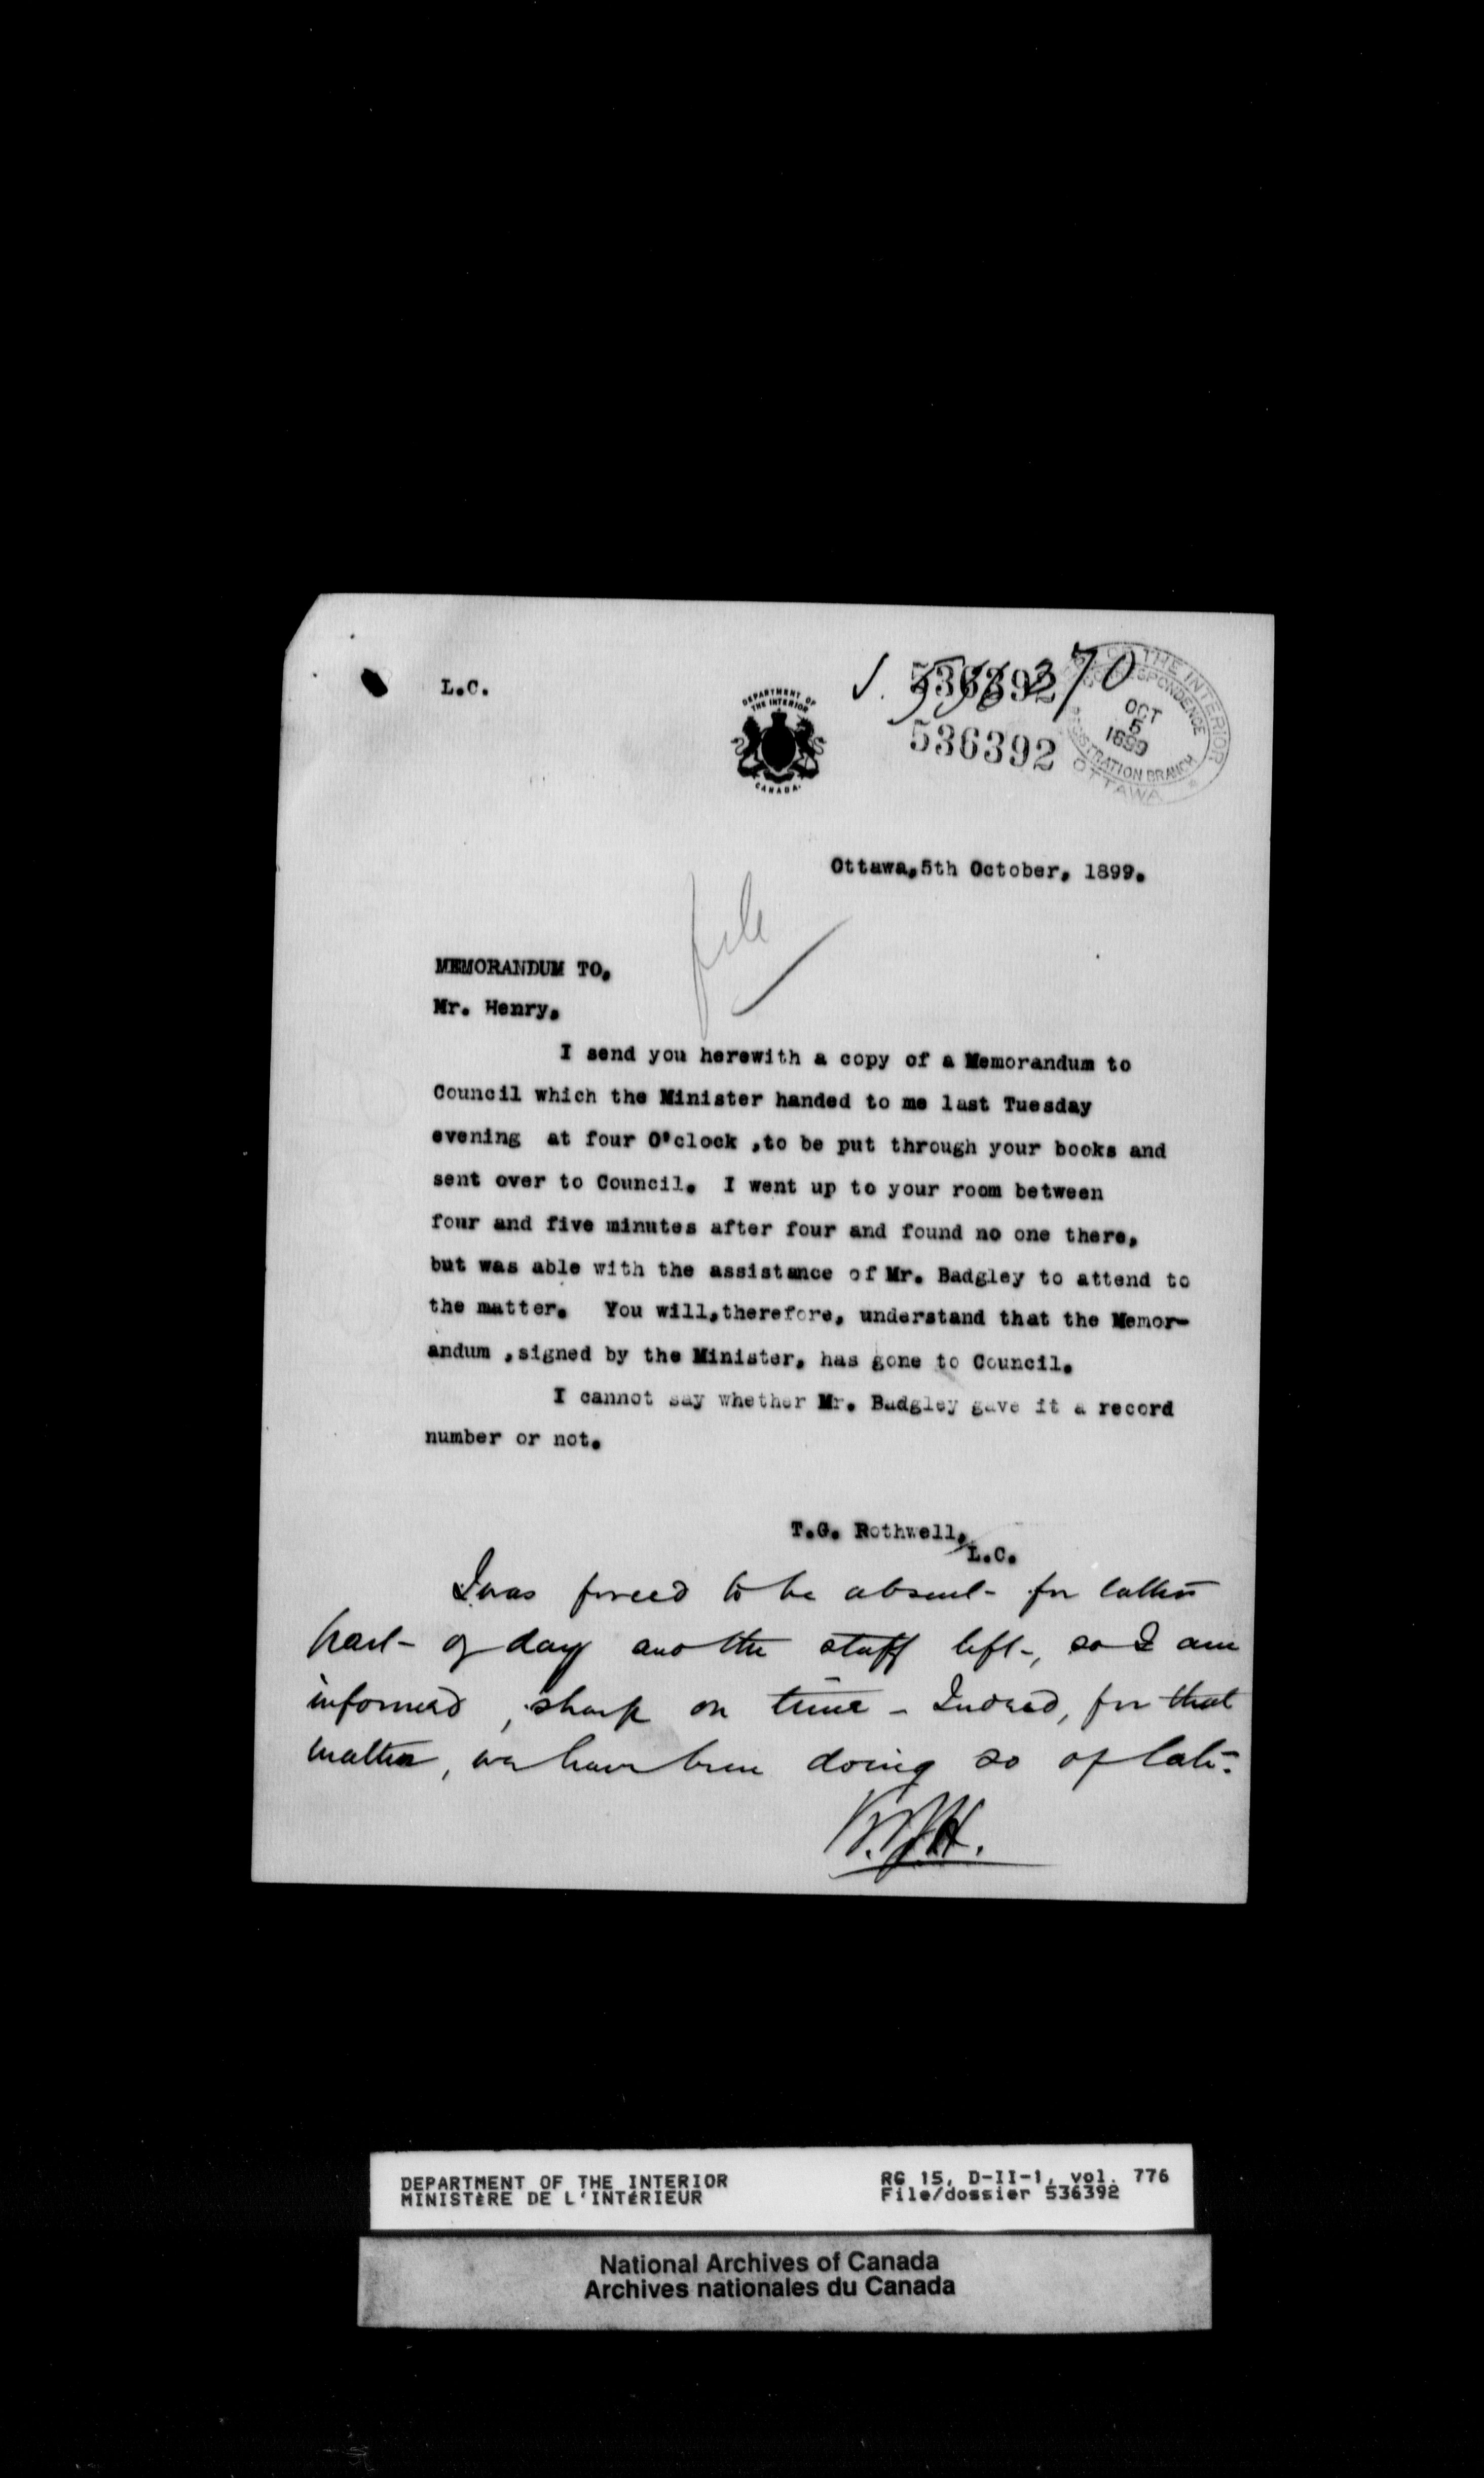 L.C.
DEPARTMENT OF
THE INTERIOR
CANADA.
536392
536392
OF THE INTERIOR
CORRESPONDENCE
OCT
5
1899
REGISTRATION BRANCH
OTTAWA
Ottawa,5th October, 1899.
file
MEMORANDUM TO,
Mr. Henry,
I send you herewith a copy of a Memorandum to
Council which the Minister handed to me last Tuesday
evening at four O'clock ,to be put through your books and
sent over to Council. I went up to your room between
four and five minutes after four and found no one there,
but was able with the assistance of Mr. Badgley to attend to
the matter. You will,therefore, understand that the Memor-
andum ,signed by the Minister, has gone to Council.
I cannot say whether Mr. Badgley gave it a record
number or not.
T.G. Rothwell,
L.C.
I was forced to be absent for latter
part of day and the staff left, so I am
informed, sharp on time - Indeed, for that
matter, we have been doing so of late.
DEPARTMENT OF THE INTERIOR
MINISTÈRE DE L'INTÉRIEUR
RG 15, D-II-1, vol. 776
File/dossier 536392
National Archives of Canada
Archives nationales du Canada